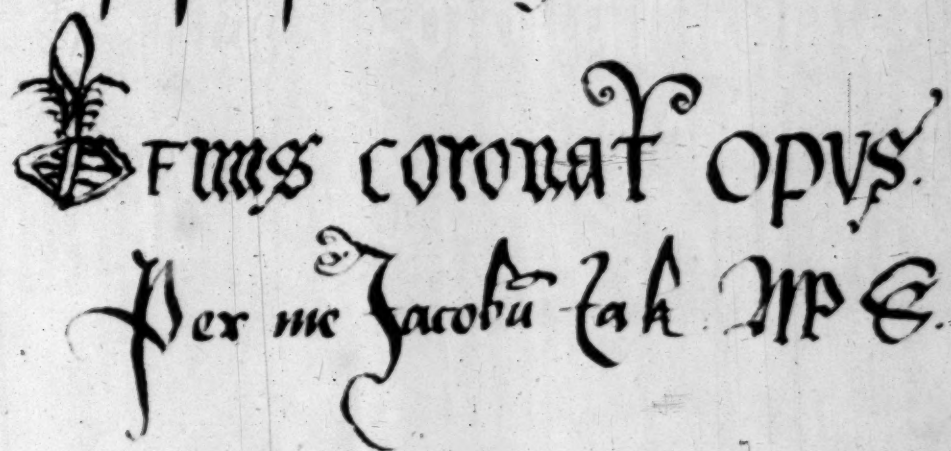 Finis coronat opus.
Per me Jacobū Zak MP S.